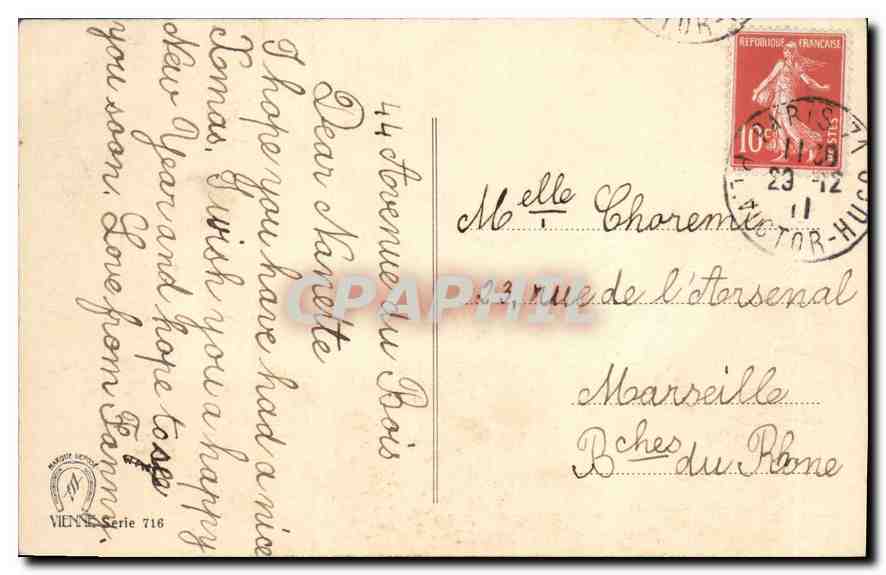 44 Avenue du Bois
Dear Nanette
I hope you have had a nice
Xmas. I wish you a happy
New Year and hope to see
you soon. Love from Fanny.
Melle Choremi
23, rue de l'Arsenal
Marseille
Bches du Rhone
REPUBLIQUE FRANÇAISE
10c POSTES
PARIS
23 -12
11
VICTOR-HUGO
CPAPHIL
MARQUE DEPOSÉ
VIENNE Serie 716